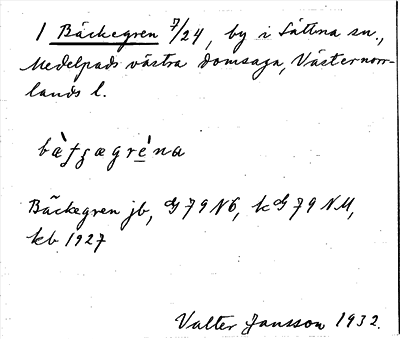 1 Bäckegren 7/24, by i Sättna sn.,
Medelpads västra domsaga, Västernorr-
lands l.
Bäckegren jb, G79NÖ, kG79NV,
kb 1927
Valter Jansson 1932.